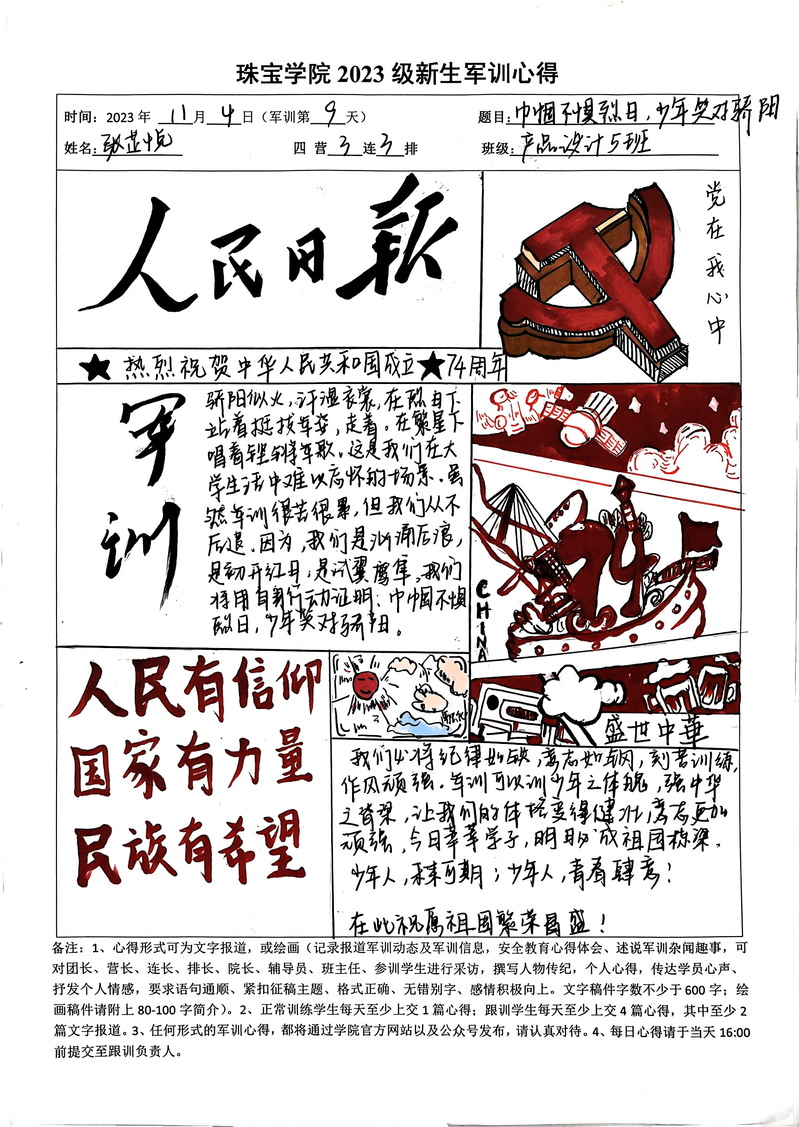 珠宝学院 2023 级新生军训心得
时间：2023 年 11 月 4 日（军训第 9 天）
题目：巾帼不惧烈日，少年笑对骄阳
姓名：耿芷悦
四 营 3 连 3 排
班级：产品设计5班
人民日报
党在我心中
★ 热烈祝贺中华人民共和国成立★74周年
军训
骄阳似火，汗湿衣裳，在烈日下
站着挺拔军姿，走着。在繁星下
唱着铿锵军歌。这是我们在大
学生活中难以忘怀的场景。虽
然军训很苦很累，但我们从不
后退。因为，我们是汹涌后浪，
是初升红日，是试翼鹰隼。我们
将用自身行动证明：巾帼不惧
烈日，少年笑对骄阳。
74
CHINA
盛世中華
人民有信仰
国家有力量
民族有希望
我们必将纪律如铁，意志如钢，刻苦训练，
作风顽强。军训可以训少年之体魄，强中华
之脊梁，让我们的体格变得健壮，意志更加
顽强，今日莘莘学子，明日必成祖国栋梁。
少年人，未来可期；少年人，青春肆意！
在此祝愿祖国繁荣昌盛！
备注：1、心得形式可为文字报道，或绘画（记录报道军训动态及军训信息，安全教育心得体会、述说军训杂闻趣事，可
对团长、营长、连长、排长、院长、辅导员、班主任、参训学生进行采访，撰写人物传纪，个人心得，传达学员心声、
抒发个人情感，要求语句通顺、紧扣征稿主题、格式正确、无错别字、感情积极向上。文字稿件字数不少于 600 字；绘
画稿件请附上 80-100 字简介）。2、正常训练学生每天至少上交 1 篇心得；跟训学生每天至少上交 4 篇心得，其中至少 2
篇文字报道。3、任何形式的军训心得，都将通过学院官方网站以及公众号发布，请认真对待。4、每日心得请于当天 16:00
前提交至跟训负责人。